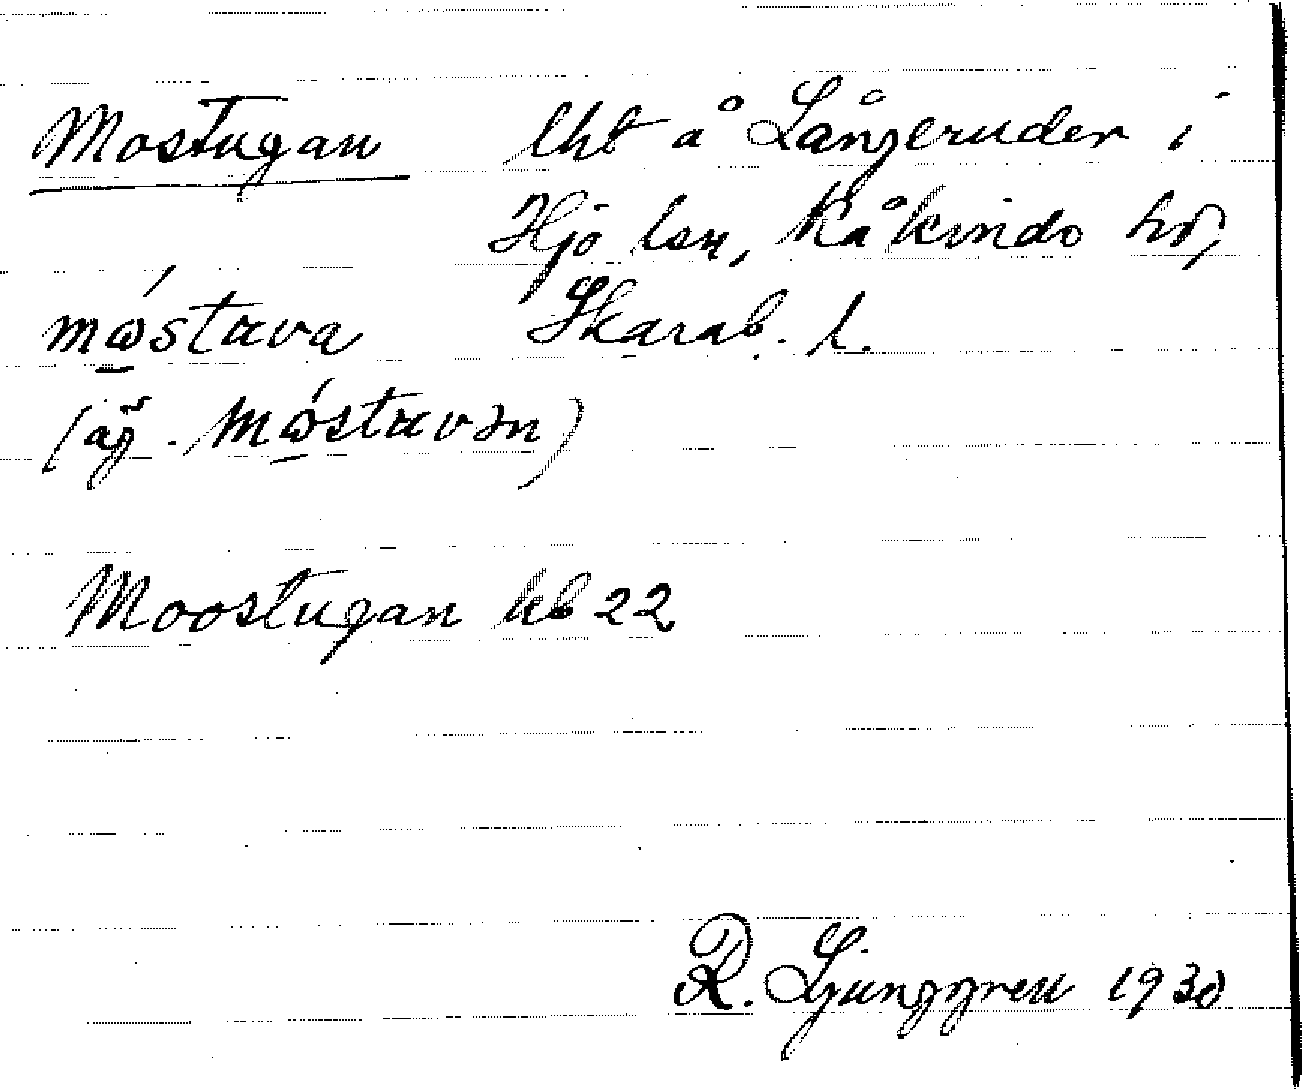 Mostugan lht å Långeruder i
Hjo lsn, Kåkindo hd,
móstava Skarab. l.
(äg. móstavən)
Moostugan kb 22
R. Ljunggren 1930